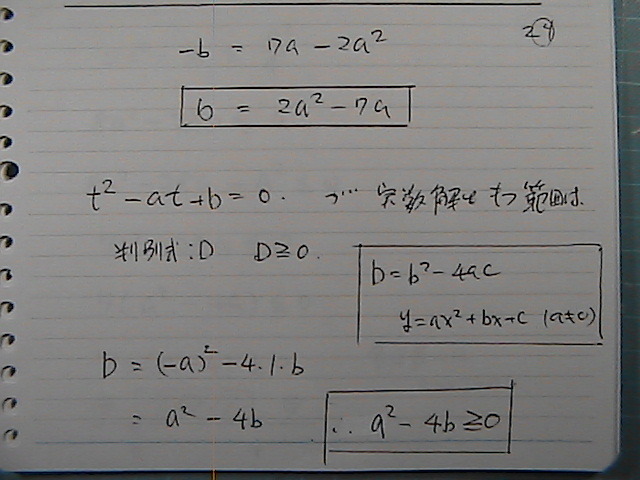 24
-b = 7a - 2a²
b = 2a² - 7a
t² - at + b = 0. ... 実数解をもつ範囲は
判別式:D D≧0.
D = b² - 4ac
y = ax² + bx + c (a≠0)
D = (-a)² - 4・1・b
= a² - 4b
∴ a² - 4b ≧ 0